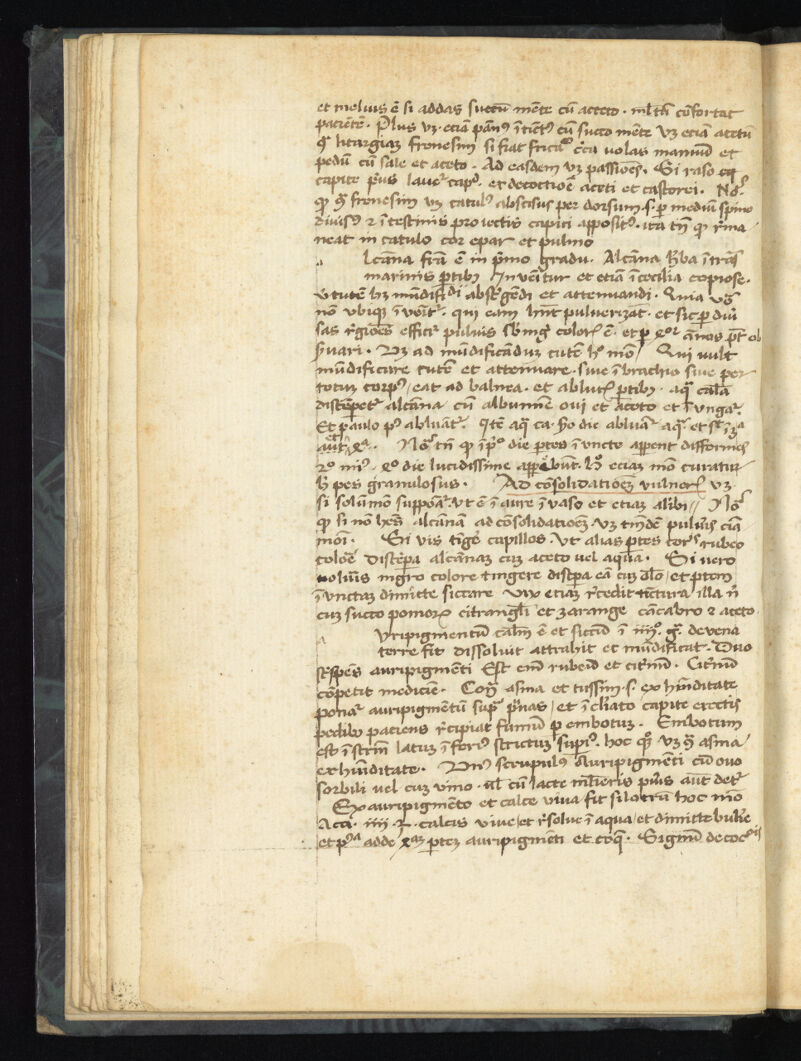 et melius ē si addas succū mēte cū aceto · ml̄tū cōfortat
paciētē · Plus vꝫ · eciā panꝰ ītīctꝰ cū succo mēte vꝫ eciā acetū
litargiaꝫ frenesim si fiat fricaᵒ circa volas manuū et
pedū cū sale et aceto · Ad easdem vꝫ passiões · Si raso
capite pꝰus lauetᵉ capᵈ · ex decoctiõe aceti et castorei · Noᵃ
frenesim vꝫ catulꝰ abscisus per dorsum · s · ꝑ mediū spine
diuisꝰ ⁊ ītestinis proiectis capiti appositꝰ · ita tñ ꝙ rᵉma
neat in catulo cor epar et pulmo
lcāna friᵃ ē in pͥmo gradu · Alcāna hᵉba ītrās
marinis ꝑtibꝫ Inuenītur et etiā ī cecilia copiose ·
v̉tutē hꝫ mūdifidi abstᵉgēdi et attenuandi · Quia vᵒ
nō vbiqꝫ īuēitᵉ · qui eam hn̄t puluerizāt · et sic ꝑ diũ
sas rᵉgiões efficiᵉ puluis colorᵉ ē · et ꝑ annos pᵗ ob
ẜuari · Vꝫ ad mūdificāduꝫ cutē hᵒ mõ / Qui vult
mūdificare cutē et attenuare · siue ī brachio siue per
totuꝫ corpꝰ / eat ad balnea · et ablutꝭ ꝑtibꝫ · aqᵃ calā
distēpetᵉ alcāna cū albumine oui et aceto et īungatᵉ ·
Et paulo pꝰ abluātᵉ · Itē aqᵃ ca · ẜo die abluātᵉ aqᵃ et
Noᵃ tñ ꝙ ipᵒ die ꝑtes īuncte appent difformes
2ᵒ miꝰ · 3ᵒ die lucidissime apparebūt · Hᵒ eciaꝫ mõ curatur
h pes granulosus · Ad cõsolidatioēꝫ vulnerꝭ vꝫ
si solūmō suppõatᵉ · vt ē ī aure ī vaso et etiaꝫ alibi // Noᵃ
ꝙ si nō hēs alcānā ad cõsolidatioēꝫ vꝫ
Si vis tīgeᵉ capillos · vt alias ꝑtes corꝑis rubeo
colore distēpa alcānaꝫ cuꝫ aceto vel aqua · Si vero
volueris nigro colore tingere distēpa eā cuꝫ oleo / et ꝑtem
īunctaꝫ dimitte siccare vix etiaꝫ rᵉcedit tinctura illa n̄
cuꝫ succo pomorꝭ citranguli et zarange cācabro ⁊ aceto ·
vripigmentū calm̄ ē et siccū ī iiijᵒ · gͣ · de vena
terre fit dissoluit attrahit et mūdificat · Duo
sūt spēs auripigmēti Est em̄ rubeū et citᵉnū · Citᵉnū
cõpetit medicīe · Conᵃ asma et tussim · s · ex hūiditate
ponatᵉ auripigmētū supᵉ pͥnas / et īclīato capite erectis
pedibꝫ paciens rᵉcipiat fumū ꝑ embotuꝫ · Embotum
est īstrm̄ latuꝫ īferiꝰ strictuꝫ supiꝰ · hoc vꝫ asma
ex hūiditate · Vnꝰ scrupulꝰ auripigmēti cū ouo
sorbili vel cuꝫ vino · vl̄ cū lacte mulieris pͥus aut detᵉ
Ex auripigmēto et calce viua fit silotrū hoc mō
calcis viue / et rᵉsolue ī aqua / et dimitte bulire
et pᵒᵃ adde ꝑtem auripigmēti et coqᵉ · Signū decoctiõis